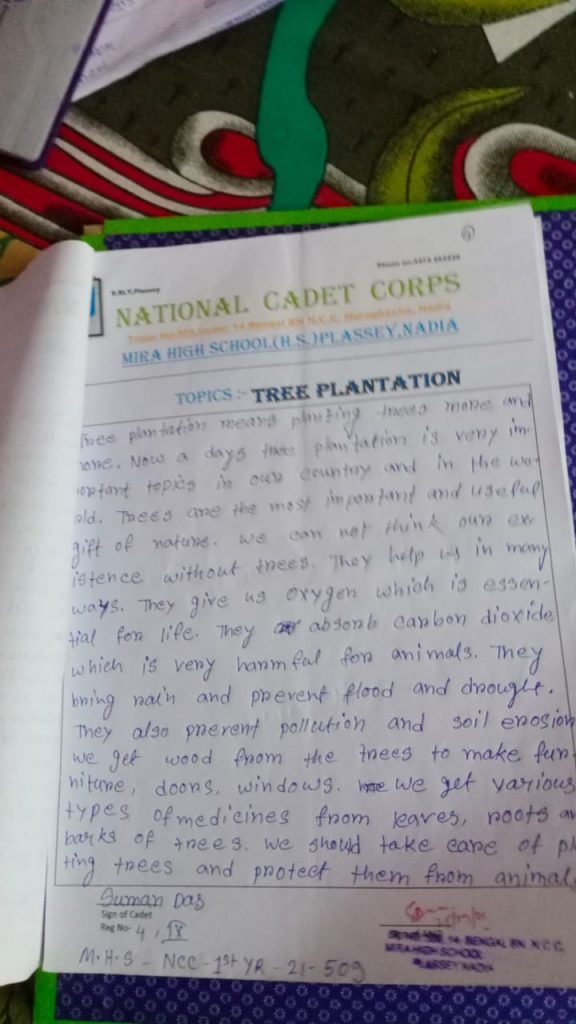 Phone no-
NATIONAL CADET CORPS
Troop No.509,Under 14 Bengal BN N.C.C. Nadia
MIRA HIGH SCHOOL(H.S.)PLASSEY,NADIA
TOPICS :- TREE PLANTATION
Tree plantation means planting trees more and
more. Now a days tree plantation is very im-
portant topics in our country and in the wo-
rld. Trees are the most important and useful
gift of nature. We can not think our ex-
istence without trees. They help us in many
ways. They give us oxygen which is essen-
tial for life. They absorb carbon dioxide
which is very harmful for animals. They
bring rain and prevent flood and drought.
They also prevent pollution and soil erosion
We get wood from the trees to make fur-
niture, doors, windows. We get various
types of medicines from leaves, roots an
barks of trees. We should take care of pl
ting trees and protect them from animal
Suman Das
Sign of Cadet
Reg No- 4, IX
M.H.S - NCC - 1st YR - 21 - 509
14 BENGAL BN N.C.C
MIRA HIGH SCHOOL
PLASSEY NADIA